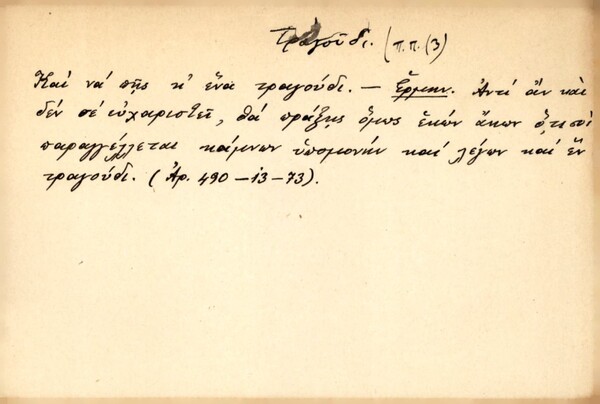 Τραγοῦδι. (π.π. (3)
Καί νά πῇς κ' ἕνα τραγούδι. — Ἑρμην. Ἀντί ἄν καί
δέν σέ εὐχαριστεῖ, θά πράξῃς ὅμως ἑκών ἄκων ὅ,τι σοί
παραγγέλλεται κάμνων ὑπομονήν καί λέγων καί ἕν
τραγούδι. (Ἀρ. 490 — 13 — 73).